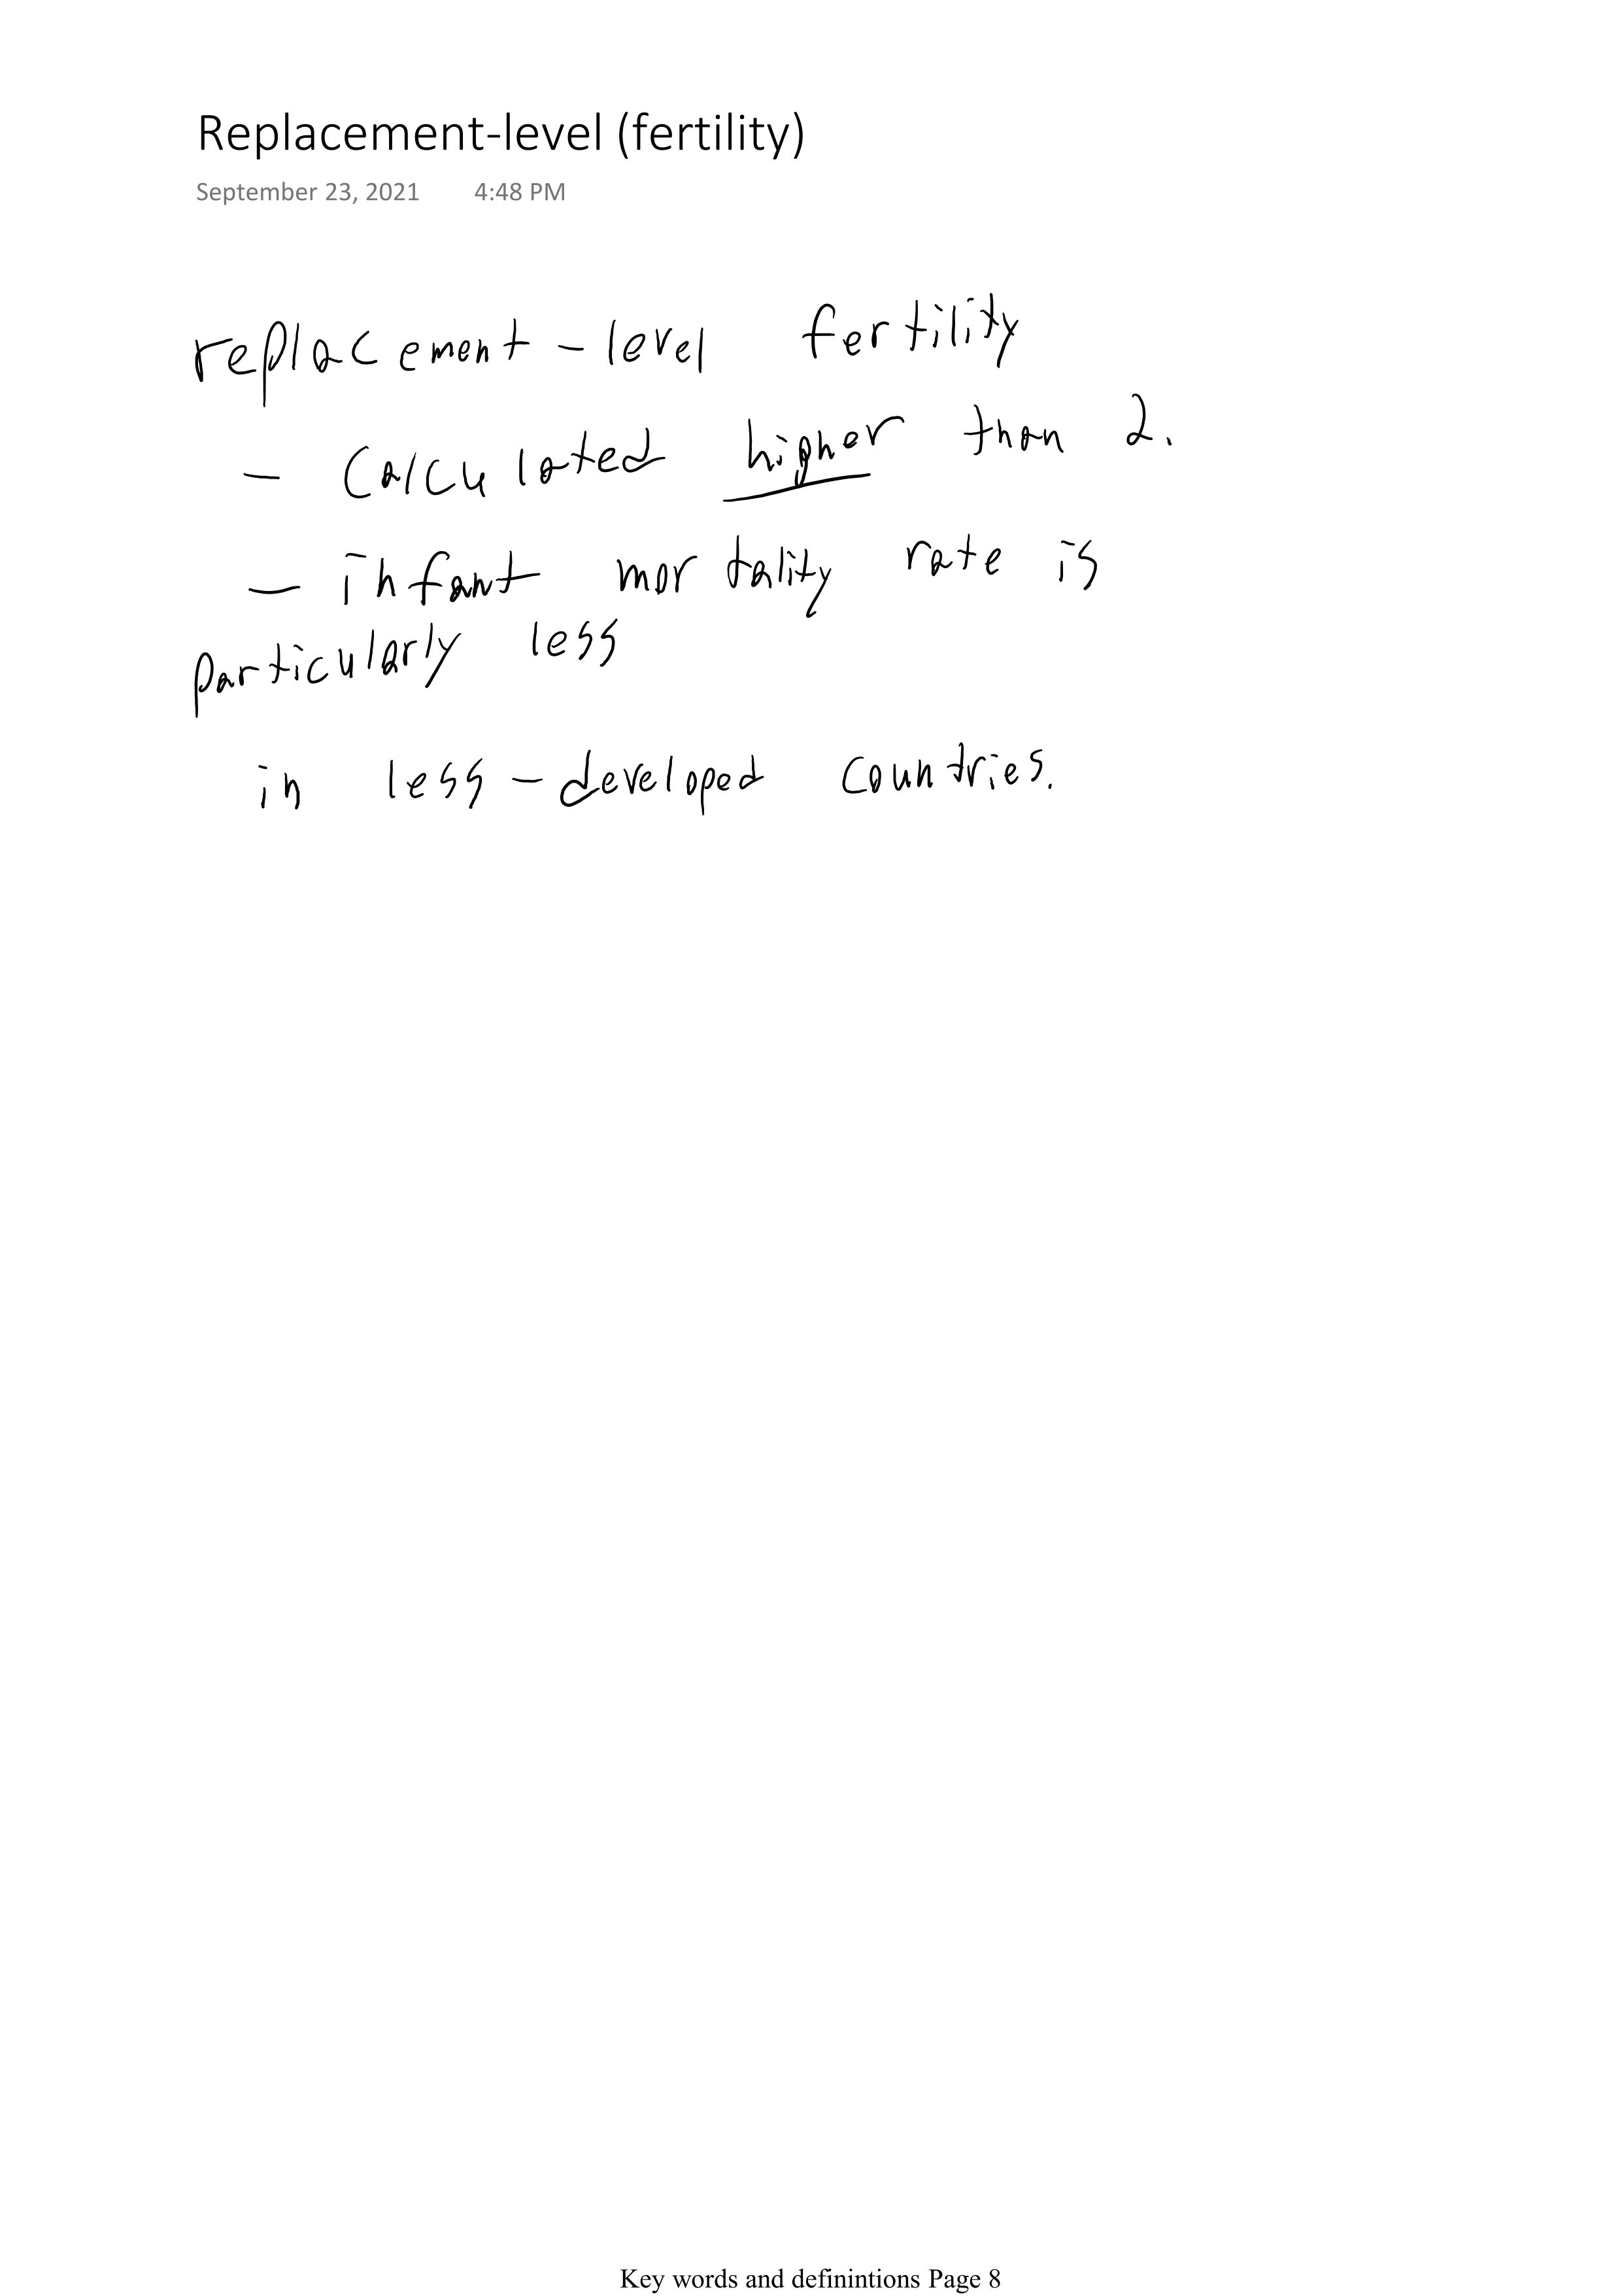 Replacement-level (fertility)
September 23, 2021 4:48 PM
replacement-level fertility
- Calculated higher than 2.
- infant mortality rate is
particularly less
in less-developed countries.
Key words and definintions Page 8